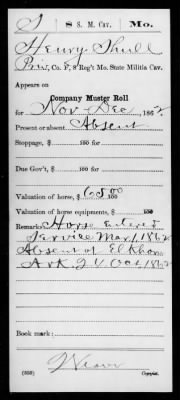 S 8 S. M. Cav. Mo.
Henry Shull
Priv, Co. F, 8 Reg't Mo. State Militia Cav.
Appears on
Company Muster Roll
for Nov & Dec, 1862
Present or absent Absent
Stoppage, $ 100 for
Due Gov't, $ 100 for
Valuation of horse, $ 65 00 100
Valuation of horse equipments, $ 100
Remarks: Horse Entered
Service Mar 1 1862
Absent at Elkhorn
Ark 1862
Book mark:
(359) Copyist.